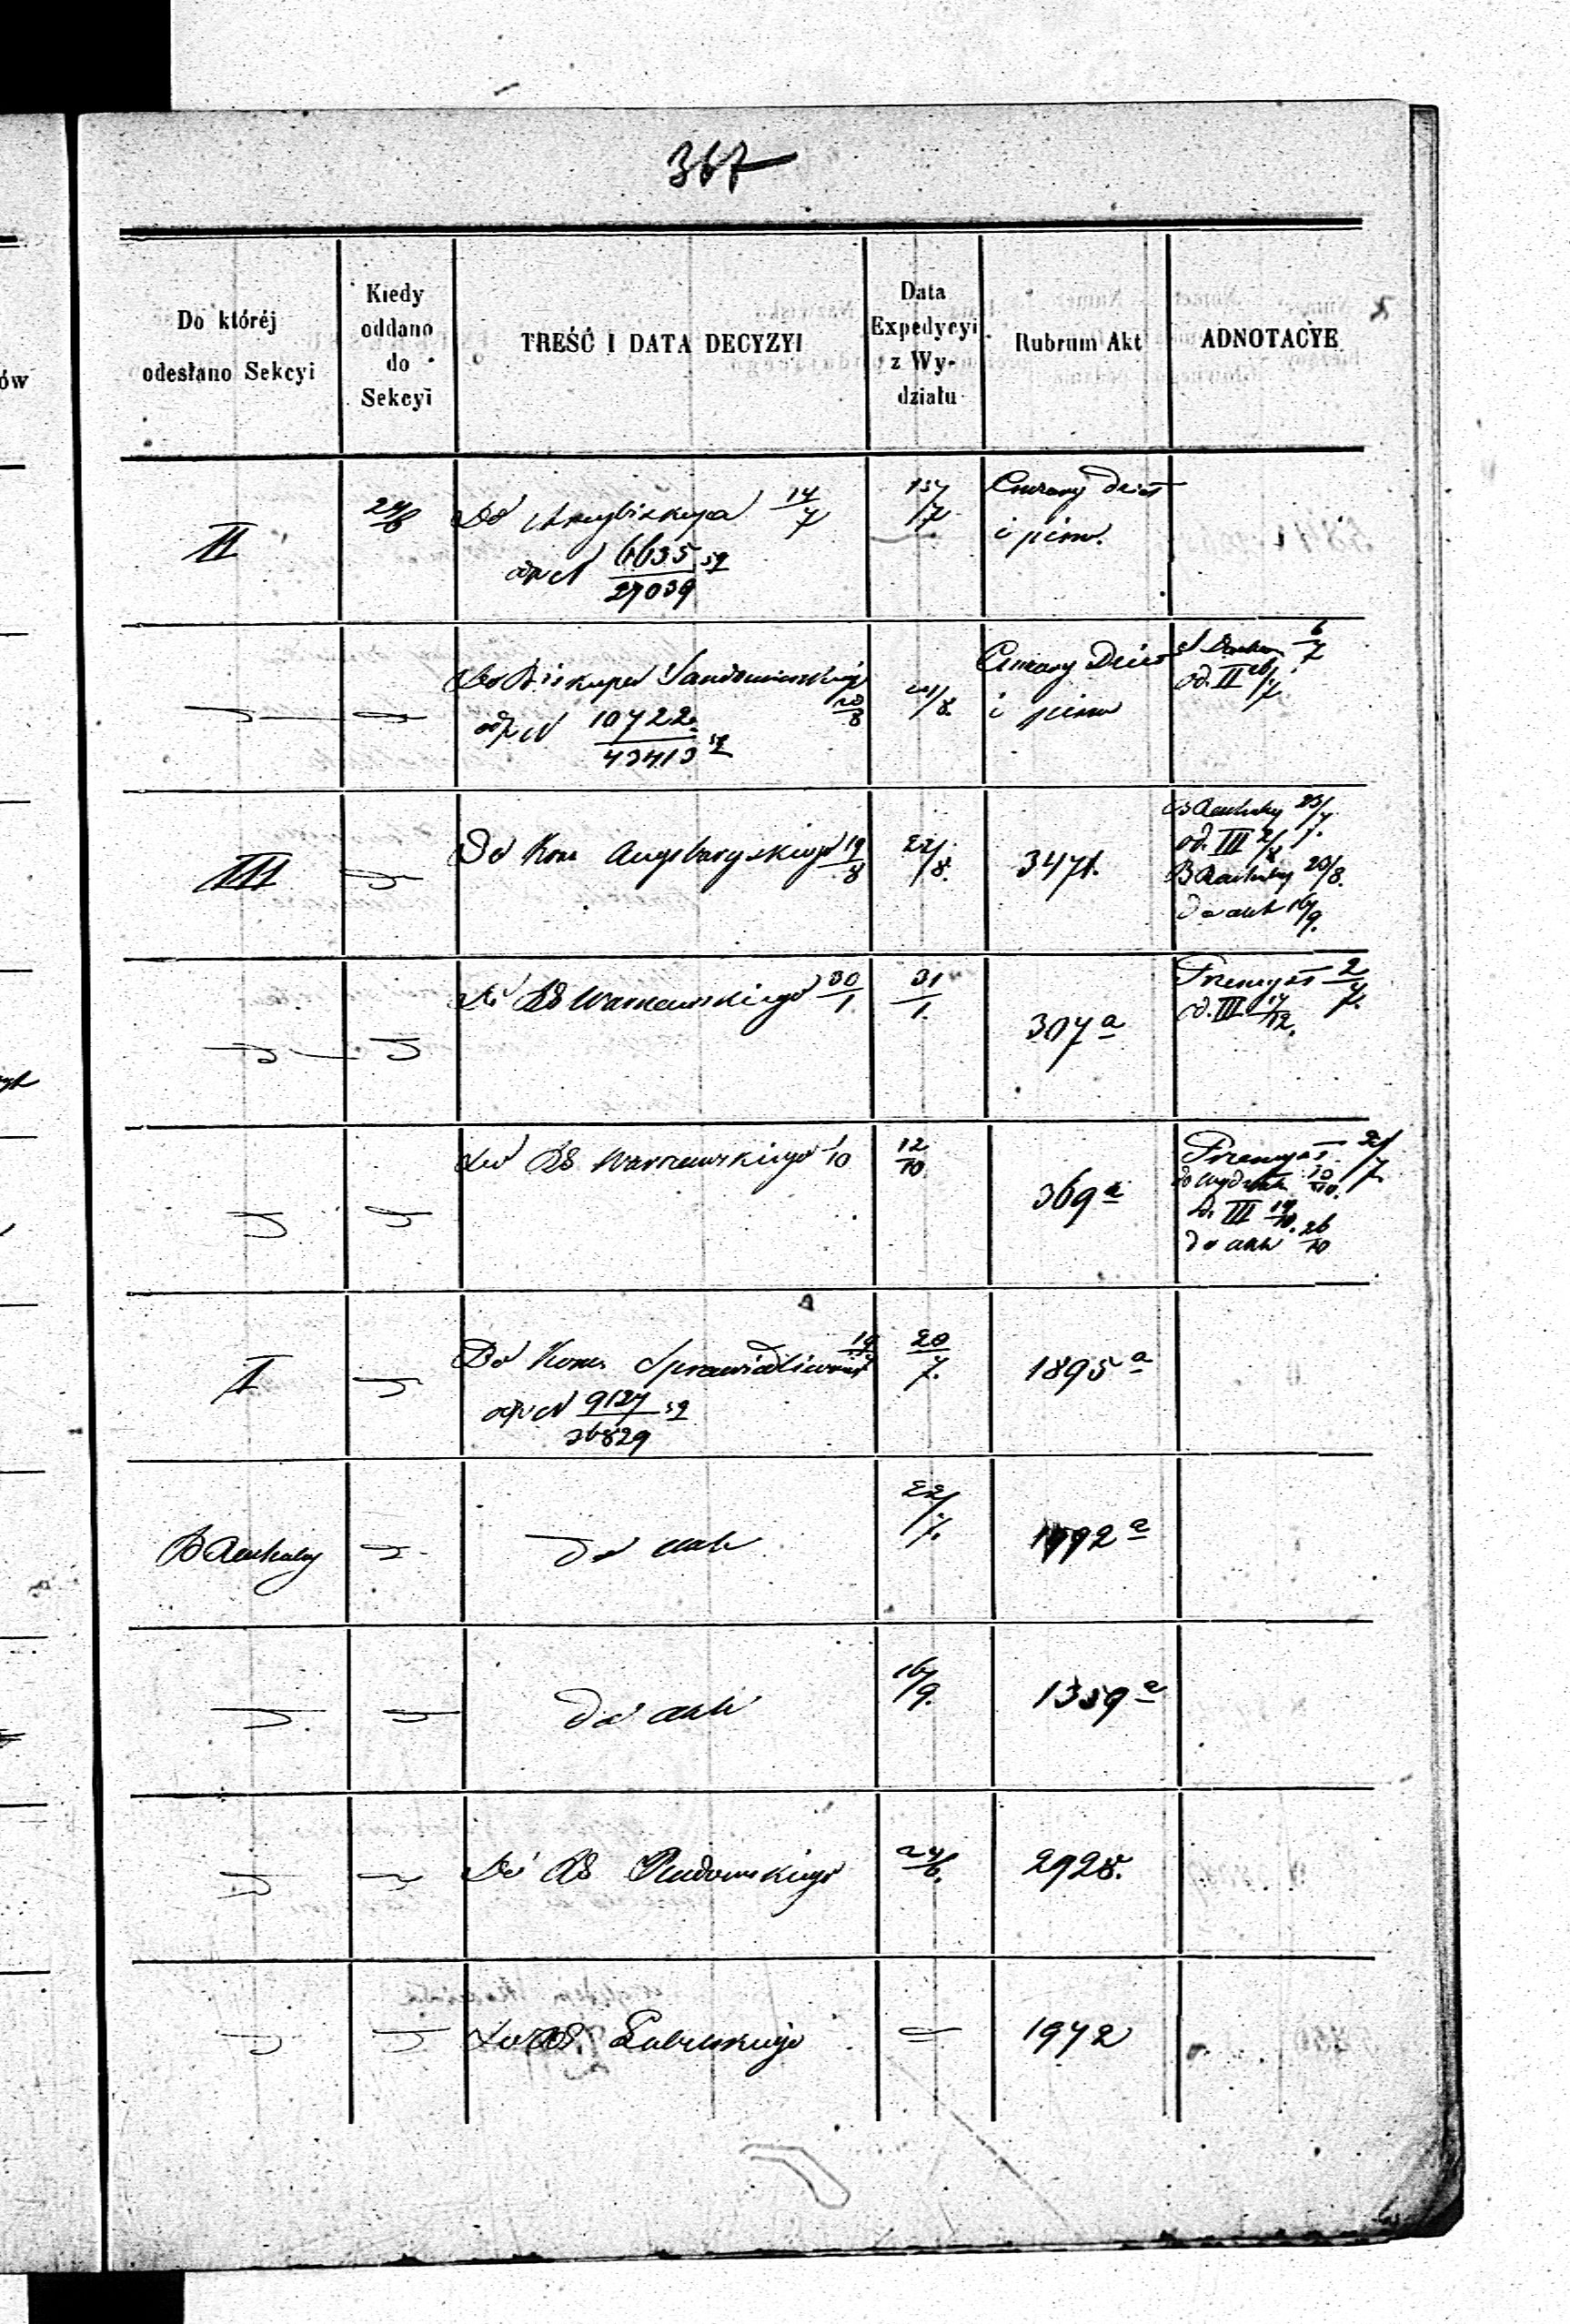 367
Do któréj
odesłano Sekcyi
Kiedy
oddano
do
Sekcyi
TREŚĆ I DATA DECYZYI
Data
Expedycyi
z Wy-
działu
Rubrum Akt
ADNOTACYE
II
24/6
Do Arcybiskupa 14/7
odp N 6635/27039
15/7
Cenzury Dzieł
i pism.
Do Biskupa Sandomierskiego 20/8
odp N 10722/43413
21/8.
Cenzury Dzieł
i pism
6/7
od. II 16/7.
III
Do Kom Augsburgskiego 19/8
22/8.
3471.
B Rachuby 23/7.
od. III 2/8
B Rachuby 20/8.
do akt 16/9.
Do RG Warszawskiego 30/1.
31/1.
307 a
Przemysł 2/7.
od. III 17/12.
Do RG Warszawskiego 1/10
12/10
369 a
Przemysł 2/7
do Wydziału 10/10.
od. III 19/10.
do akt 26/10
I
Do Kom. Sprawiedliwości 19/7
odp N 9127/36829
20/7.
1895 a
B Rachuby
do akt
22/7.
1992 a
do akt
16/9.
1359 a
Do RG Radomskiego
24/6.
2928.
Do RG Lubelskiego
1972